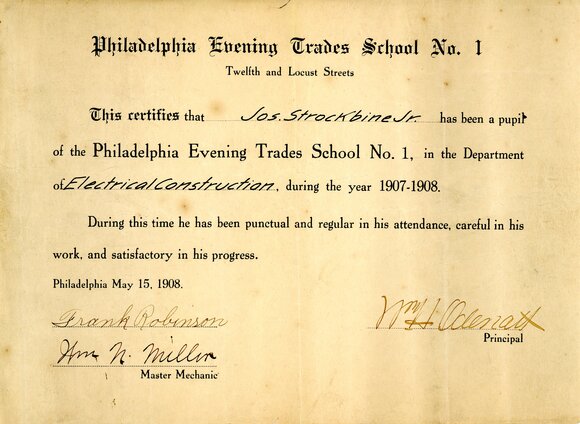 Philadelphia Evening Trades School No. 1
Twelfth and Locust Streets
This certifies that Jos. Strockbine Jr. has been a pupil
of the Philadelphia Evening Trades School No. 1, in the Department
of Electrical Construction, during the year 1907-1908.
During this time he has been punctual and regular in his attendance, careful in his
work, and satisfactory in his progress.
Philadelphia May 15, 1908.
Frank Robinson
Wm H Odenatt
Principal
Wm N. Miller
Master Mechanic